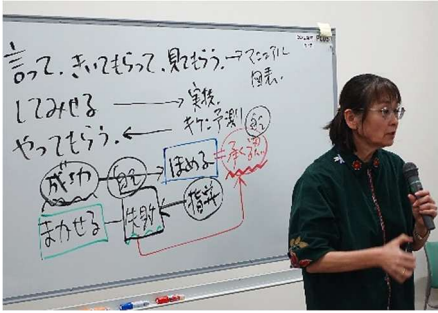 言って、きいてもらって、見てもらう。→マニュアル
図表
してみせる → 実技
キケン予測
やってもらう。
成功 ほめる = 承く認
まかせる 失敗
PLUS